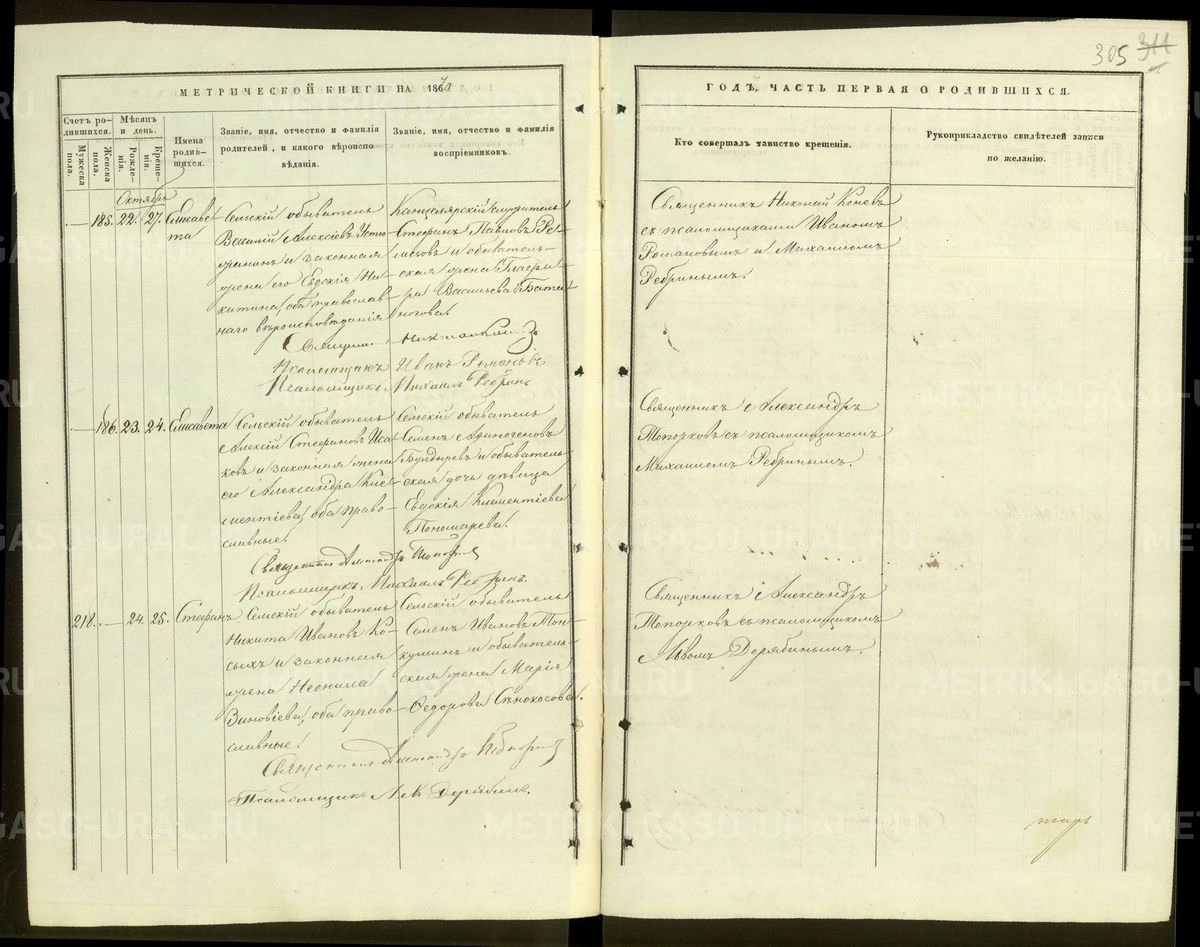 305 311
МЕТРИЧЕСКОЙ КНИГИ НА 1870
ГОДЪ, ЧАСТЬ ПЕРВАЯ О РОДИВШИХСЯ.
Счетъ родившихся.
Мужеска пола.
Женска пола.
Мѣсяцъ и день.
Рожденія.
Крещенія.
Имена родившихся.
Званіе, имя, отчество и фамилія
родителей, и какого вѣроиспо
вѣданія.
Званіе, имя, отчество и фамилія
воспріемниковъ.
Кто совершалъ таинство крещенія.
Рукоприкладство свидѣтелей записи
по желанію.
Октябрь
185. 22. 27. Елисавета
Сельскій обыватель
Василій Алексѣевъ Устю
жанинъ и законная
жена его Евдокія Ни
китина, оба православ
наго вѣроисповѣданія
Канцелярскій служитель
Стефанъ Павловъ
и обыватель
ская жена
Васильева
Священникъ Николай Коневъ
съ псаломщиками Иваномъ
Романовымъ и Михаиломъ
Ребринымъ.
Псаломщикъ Иванъ Романовъ
Псаломщикъ Михаилъ Ребринъ
186. 23. 24. Елисавета
Сельскій обыватель
Алексій Стефановъ Иса
ковъ и законная жена
его Александра Кле
ментіева, оба право
славные.
Сельскій обыватель
Семенъ Аѳиногеновъ
Булдыревъ и обыватель
ская дочь дѣвица
Евдокія Клементіева
Пономарева.
Священникъ Александръ
Топорковъ съ псаломщикомъ
Михаиломъ Ребринымъ.
Священникъ Александръ Топорковъ
Псаломщикъ Михаилъ Ребринъ.
218. 24. 25. Стефанъ
Сельскій обыватель
Никита Ивановъ Ко
сыхъ и законная
жена Неонила
Зиновіева, оба право
славные.
Сельскій обыватель
Семенъ Ивановъ
и обыватель
ская жена Марія
Ѳедорова Сѣнокосова.
Священникъ Александръ
Топорковъ съ псаломщикомъ
Львомъ Дерябинымъ.
Священникъ Александръ Топорковъ
Псаломщикъ Левъ Дерябинъ.
METRIKI.GASO-URAL.RU